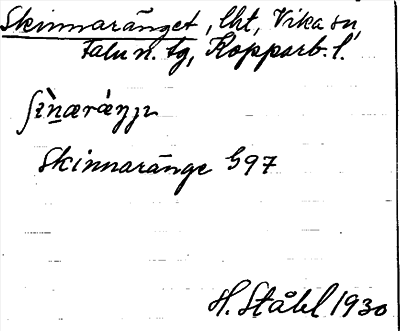 Skinnaränget, lht, Vika sn,
Falu n. tg, Kopparb. l.
Skinnaränge 597
H. Ståhl 1930